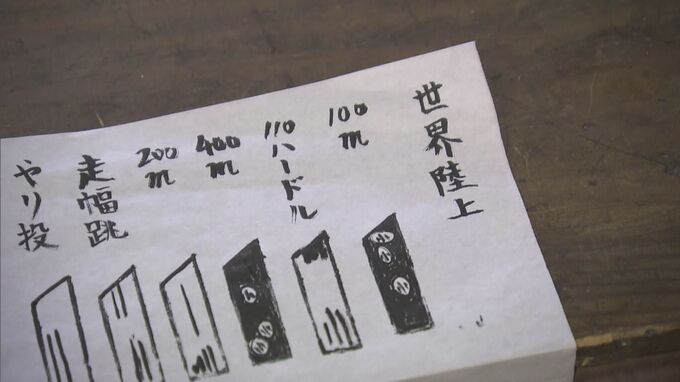 世界陸上
100m
110ハードル
400m
200m
走幅跳
やり投